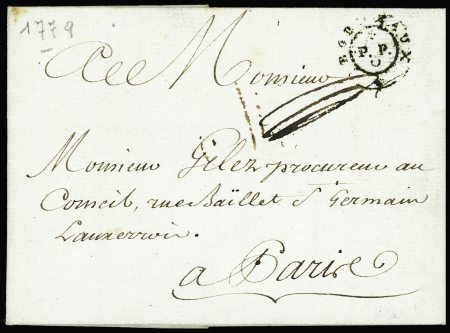 1779
BORDEAUX
P.P.
A Monsieur
Monsieur Gilez procureur au
Conseil, rue Baillet St Germain
Lauxerrois.
a Paris